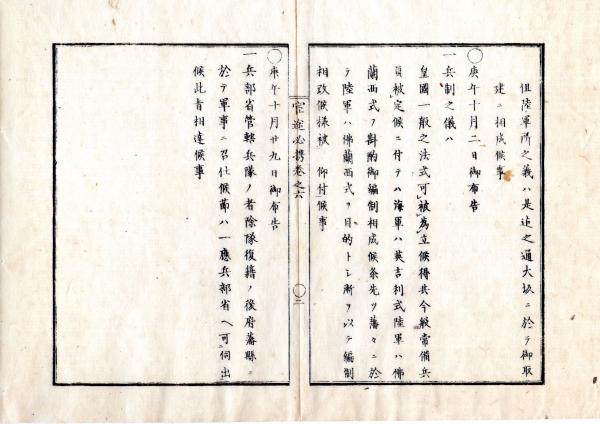 但陸軍所之義ハ是迄之通大坂ニ於テ御取
建ニ相成候事
◯庚午十月二日御布告
一兵制之儀ハ
皇國一般之法式可被為立候得共今般常備兵
員被定候ニ付テハ海軍ハ英吉利式陸軍ハ佛
蘭西式ヲ斟酌御編制相成候条先ツ藩々ニ於
テ陸軍ハ佛蘭西式ヲ目的トシ漸ヲ以テ編制
相改候樣被 仰付候事
官途必携巻之六
◯二
◯庚午十月廿九日御布告
一兵部省管轄兵隊ノ者除隊復籍ノ後府藩縣ニ
於テ軍事ニ召仕候節ハ一應兵部省ヘ可伺出
候此旨相達候事